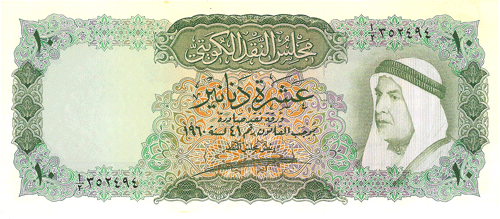 ١٠
مجلس النقد الكويتي
١/٢ ٣٥٢٤٩٤
١٠
عشرة دنانير
ورقة نقد صادرة
بموجب القانون رقم ٤١ لسنة ١٩٦٠
رئيس مجلس النقد
١٠
١/٢ ٣٥٢٤٩٤
١٠